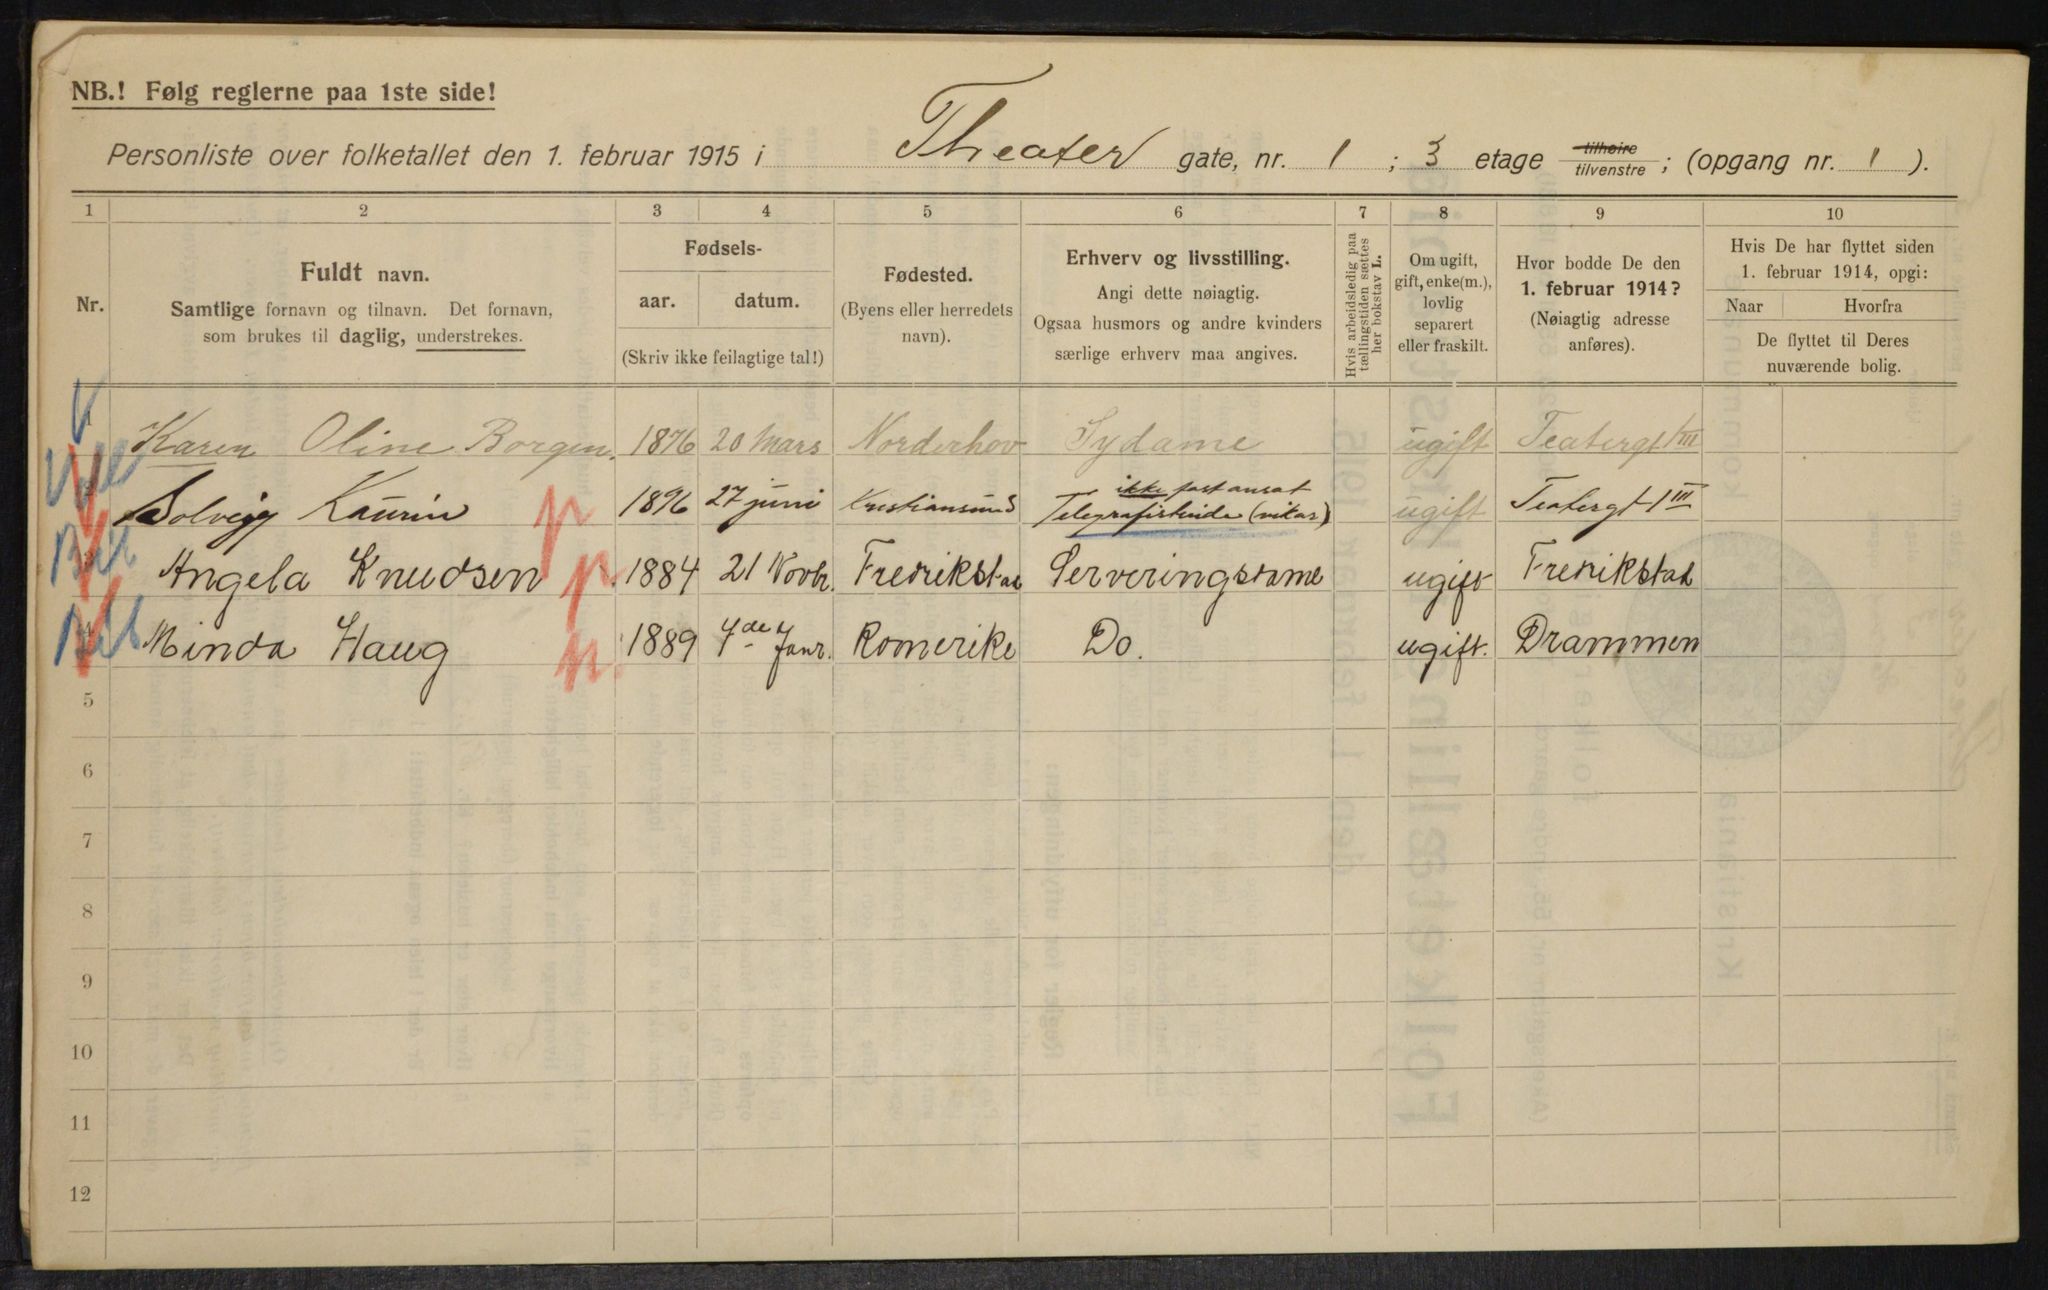 NB.! Følg reglerne paa 1ste side!
Personliste over folketallet den 1. februar 1915 i Theater gate, nr. 1 ; 3 etage tilhøire tilvenstre ; (opgang nr. 1 ).
1 2 3 4 5 6 7 8 9 10
Nr.
Fuldt navn.
Samtlige fornavn og tilnavn. Det fornavn,
som brukes til daglig, understrekes.
Fødsels-
aar. datum.
(Skriv ikke feilagtige tal!)
Fødested.
(Byens eller herredets
navn).
Erhverv og livsstilling.
Angi dette nøiagtig.
Ogsaa husmors og andre kvinders
særlige erhverv maa angives.
Hvis arbeidsledig paa
tællingstiden sættes
her bokstav L.
Om ugift,
gift, enke(m.),
lovlig
separert
eller fraskilt.
Hvor bodde De den
1. februar 1914?
(Nøiagtig adresse
anføres).
Hvis De har flyttet siden
1. februar 1914, opgi:
Naar Hvorfra
De flyttet til Deres
nuværende bolig.
Karen Oline Borgen. 1876 20 Mars Norderhov Sydame ugift Teatergt 1 III
ikke fast ansat
Solveig Kaurin p 1896 27 juni Kristiansund Telegrafistinde (vikar) ugift Teatergt 1 III
Angela Knudsen p. 1884 21 Novbr. Fredrikstad Serveringsdame ugift Fredrikstad
Minda Haug p. 1889 7de Janr. Romerike Do. ugift. Drammen
5
6
7
8
9
10
11
12